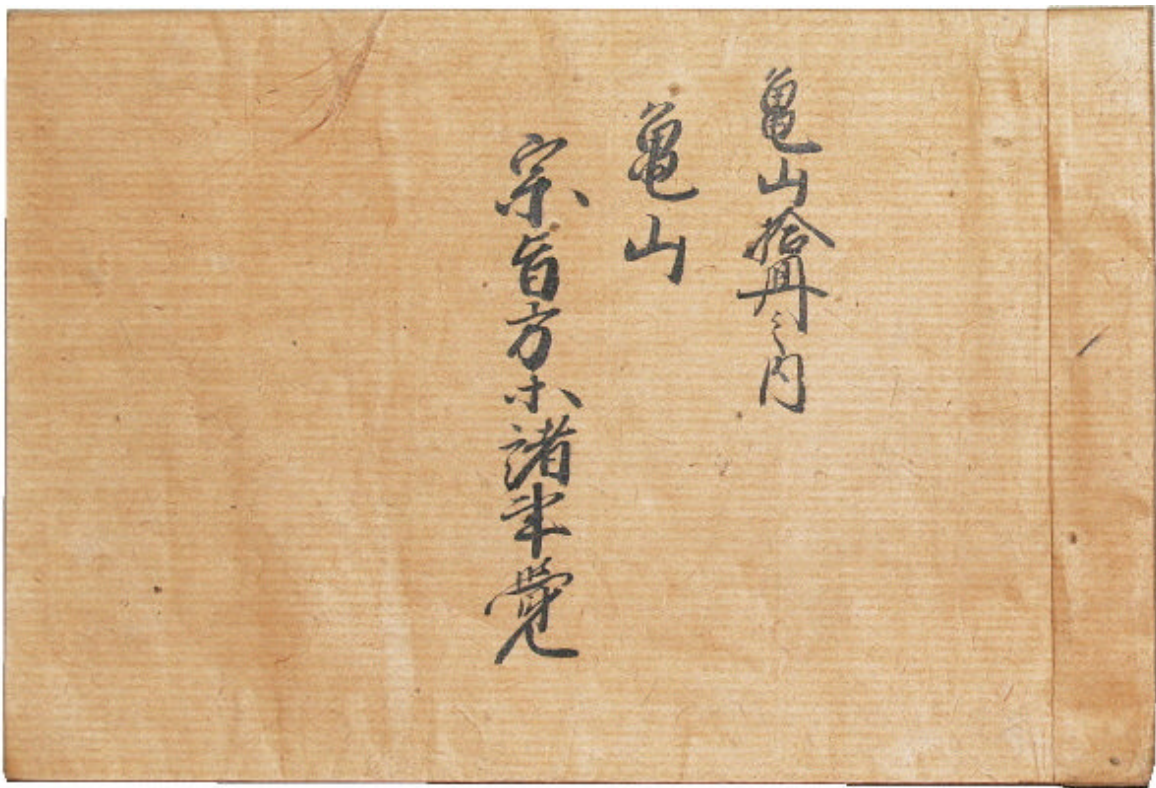 亀山拾冊之内
亀山
宗旨方等諸事覚